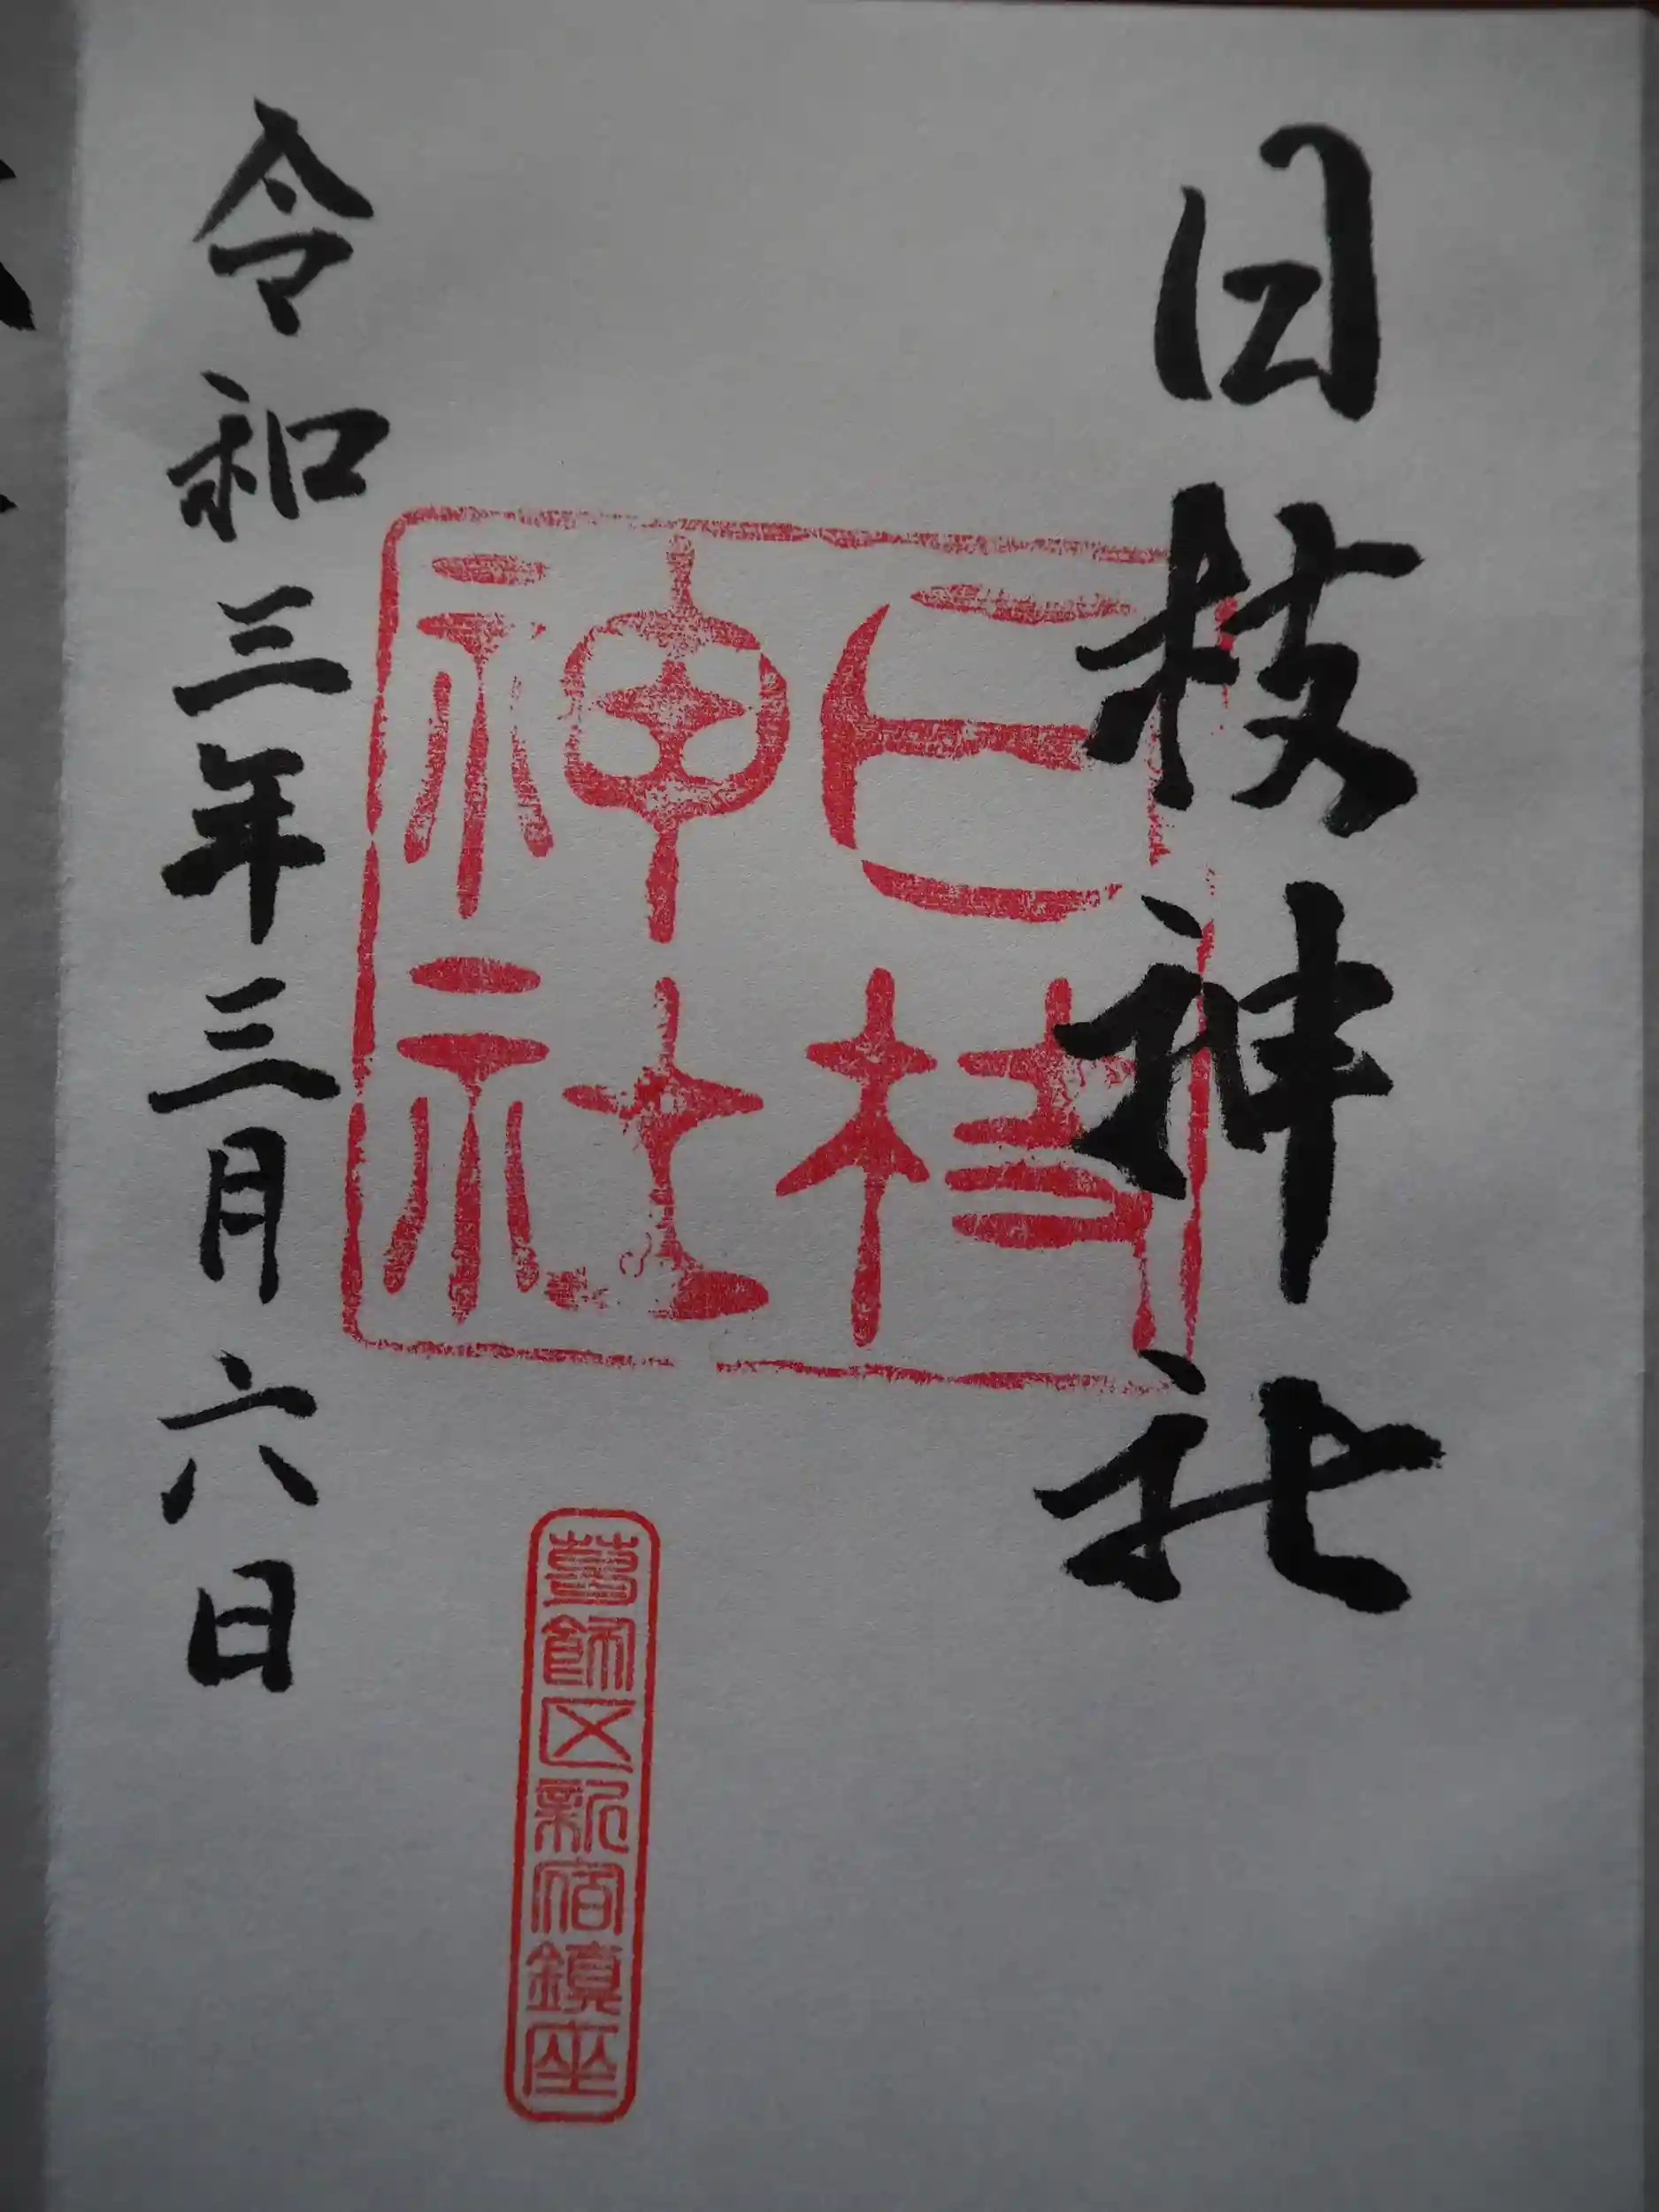 日枝神社
日枝神社
葛飾区新宿鎮座
令和三年三月六日